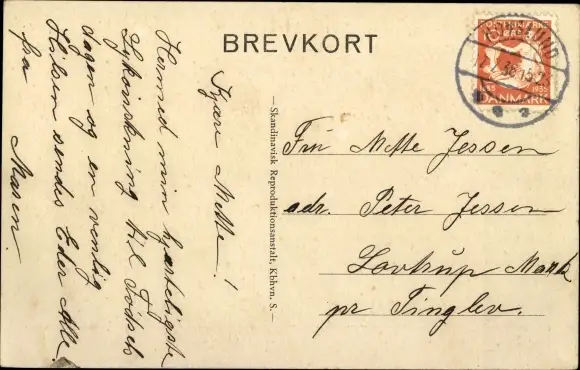 BREVKORT
Kjære Mette!
Hermed min hjærteligste
Lykønskning til Fødsels
dagen og en venlig
Hilsen sendes Eder Alle
fra Maren.
—Skandinavisk Reproduktionsanstalt, Kbhvn. S.—
Fru Mette Jessen
adr. Peter Jessen
Lovtrup Mark
pr Tinglev.
POSTFRIMÆRKE
1935
DANMARK